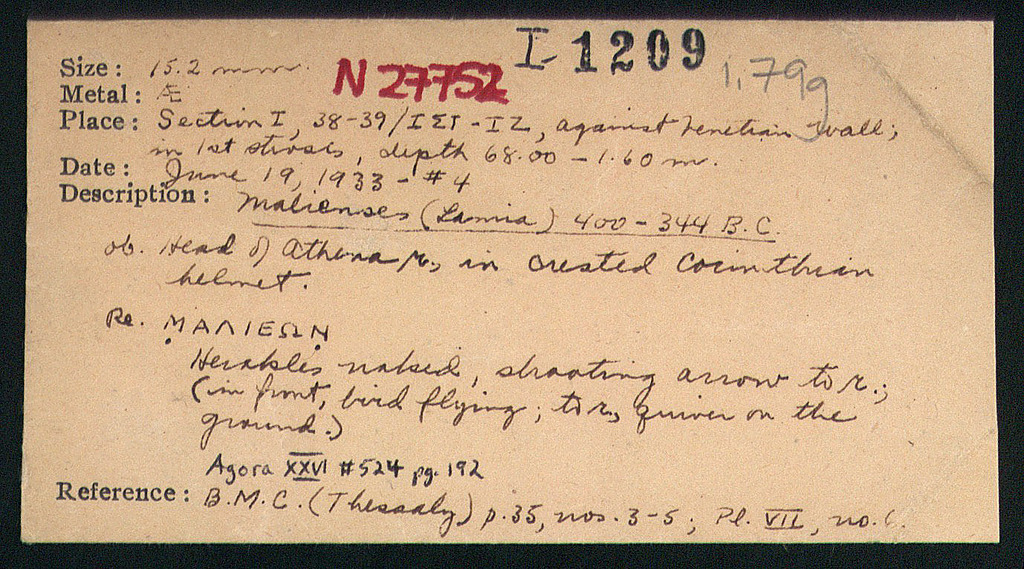 I-1209
N 27752
1,79g
Size: 15.2 mm.
Metal: Æ
Place: Section I, 38-39/ΙΣΤ-ΙΖ, against Venetian wall;
in 1st strosis, depth 68.00 - 1.60 m.
Date: June 19, 1933 - #4
Description: Malienses (Lamia) 400-344 B.C.
ob. Head of Athena r., in crested Corinthian
helmet.
Re. ΜΑΛΙΕΩΝ
Herakles naked, shooting arrow to r.;
(in front, bird flying; to r., quiver on the
ground.)
Agora XXVI #524 pg. 192
Reference: B.M.C. (Thessaly) p.35, nos. 3-5; Pl. VII, no.